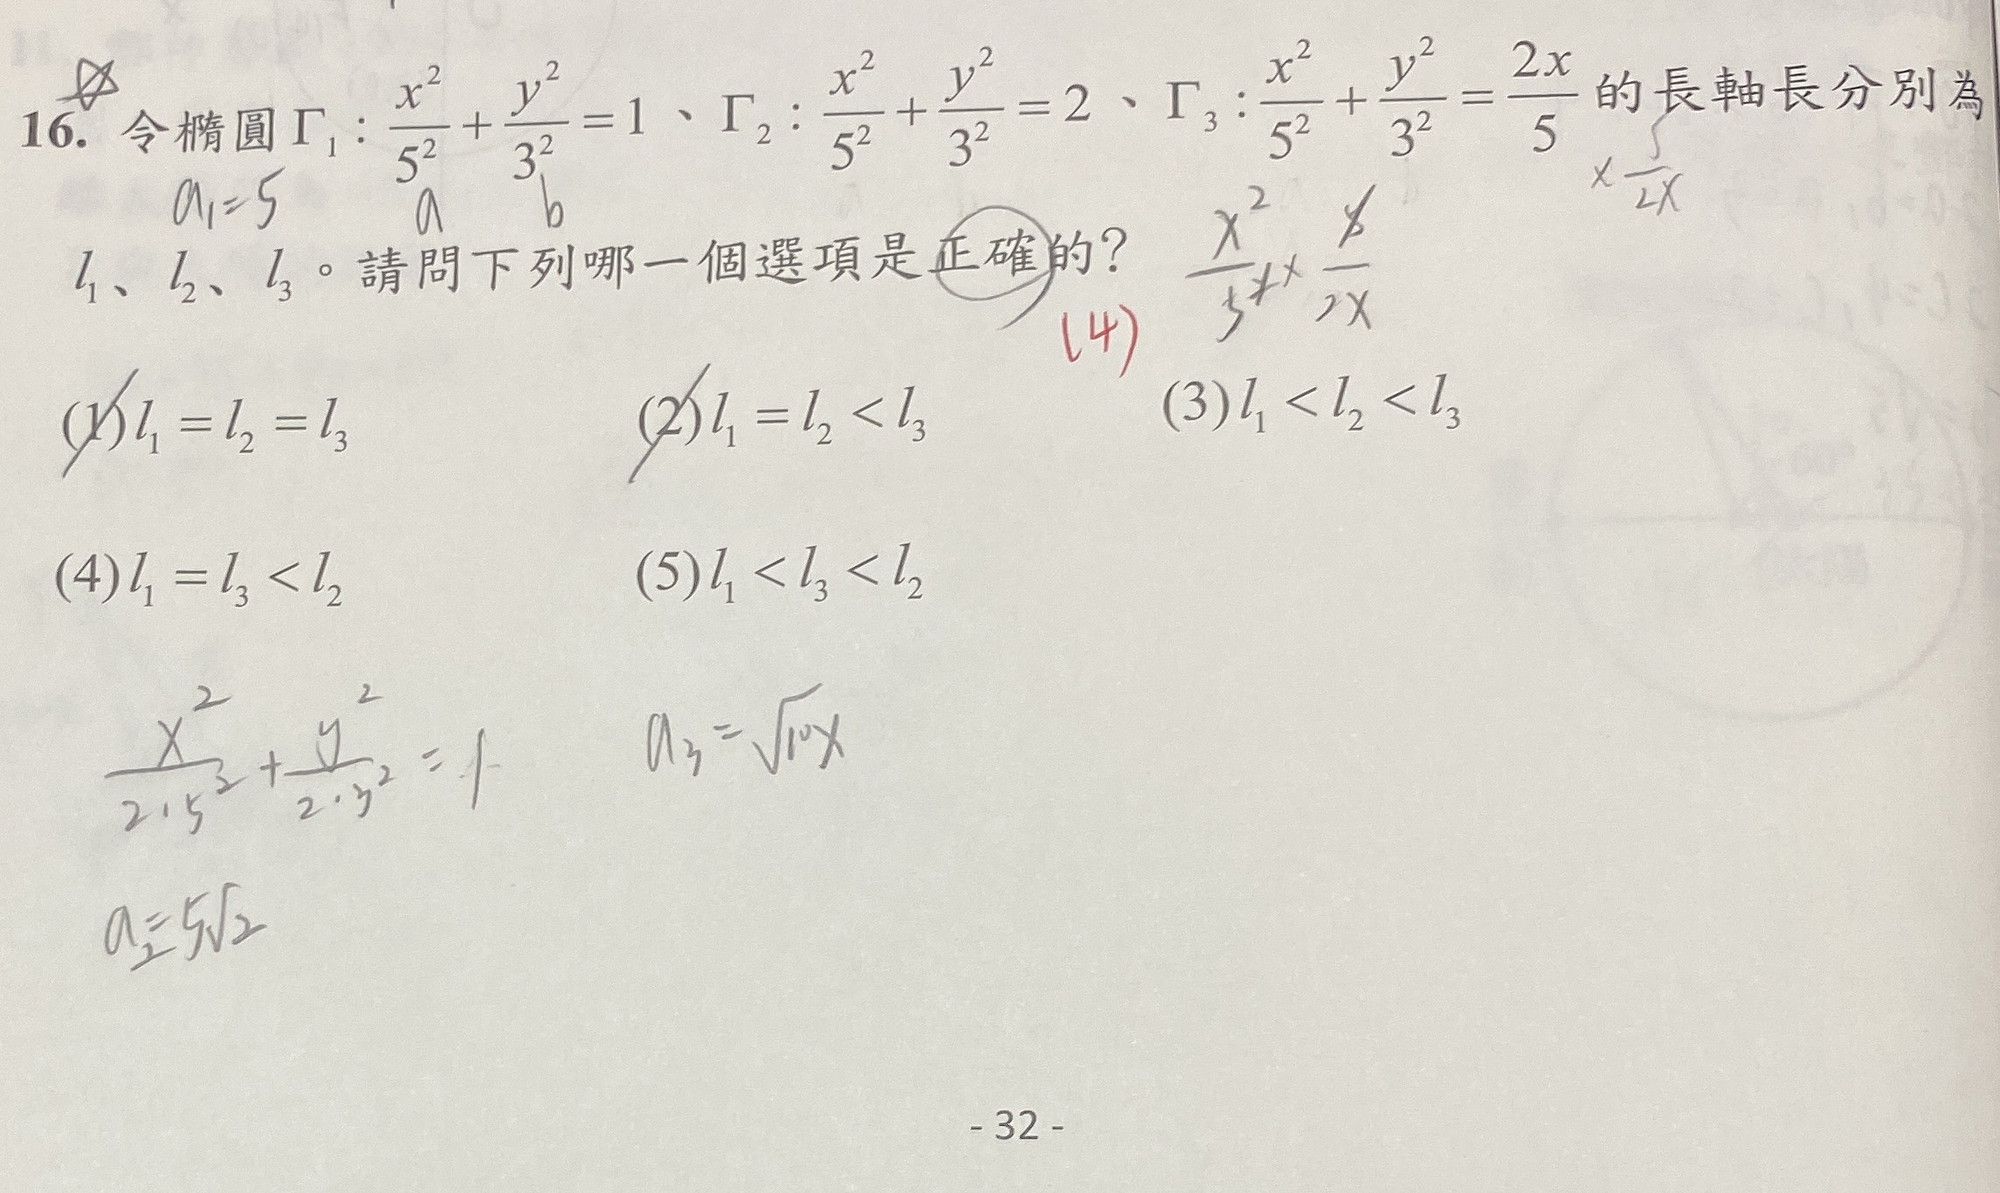 16. 令橢圓 Γ₁ : x²/5² + y²/3² = 1、Γ₂ : x²/5² + y²/3² = 2、Γ₃ : x²/5² + y²/3² = 2x/5 的長軸長分別為
a₁=5 a b × 5/2X
l₁、l₂、l₃。請問下列哪一個選項是正確的?
(4)
(1) l₁ = l₂ = l₃ (2) l₁ = l₂ < l₃ (3) l₁ < l₂ < l₃
(4) l₁ = l₃ < l₂ (5) l₁ < l₃ < l₂
x²/2·5² + y²/2·3² = 1 a₃ = √10x
a₂=5√2
- 32 -